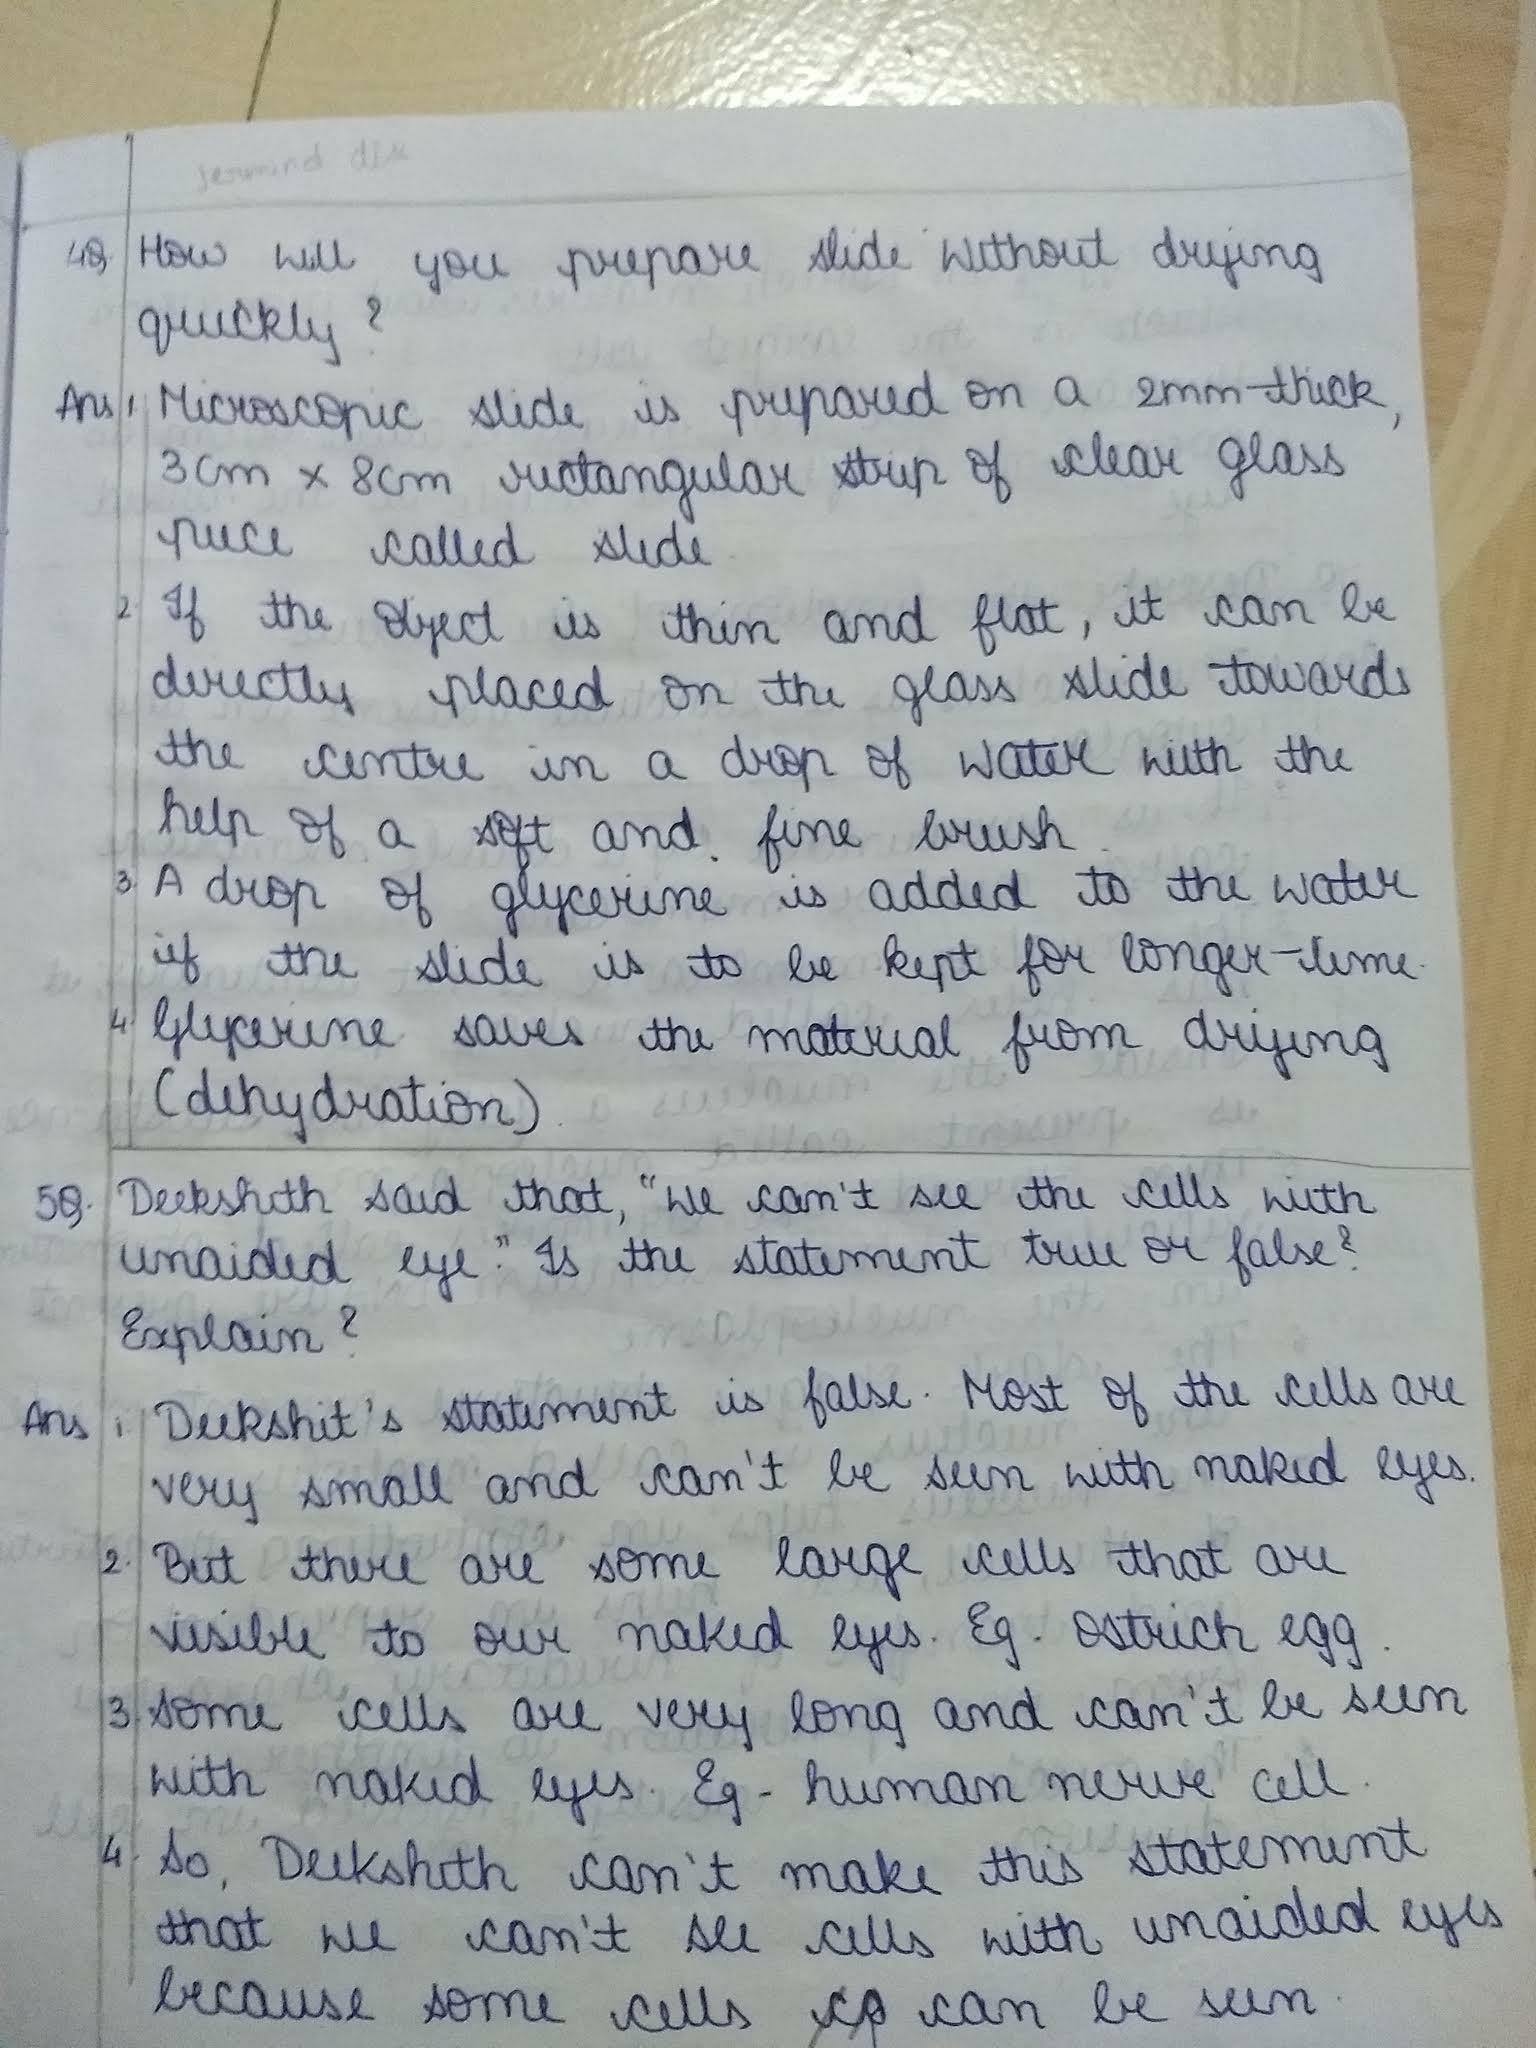 4Q. How will you prepare slide without drying
quickly?
Ans 1 Microscopic slide is prepared on a 2mm-thick,
3cm x 8cm rectangular strip of clear glass
piece called slide.
2. If the object is thin and flat, it can be
directly placed on the glass slide towards
the centre in a drop of water with the
help of a soft and fine brush.
3. A drop of glycerine is added to the water
if the slide is to be kept for longer-time.
4. Glycerine saves the material from drying
(dehydration).
5Q. Deekshith said that, "We can't see the cells with
unaided eye." Is the statement true or false?
Explain?
Ans 1. Deekshit's statement is false. Most of the cells are
very small and can't be seen with naked eyes.
2. But there are some large cells that are
visible to our naked eyes. Eg. Ostrich egg.
3. Some cells are very long and can't be seen
with naked eyes. Eg - human nerve cell.
4. So, Deekshith can't make this statement
that we can't see cells with unaided eyes
because some cells can be seen.